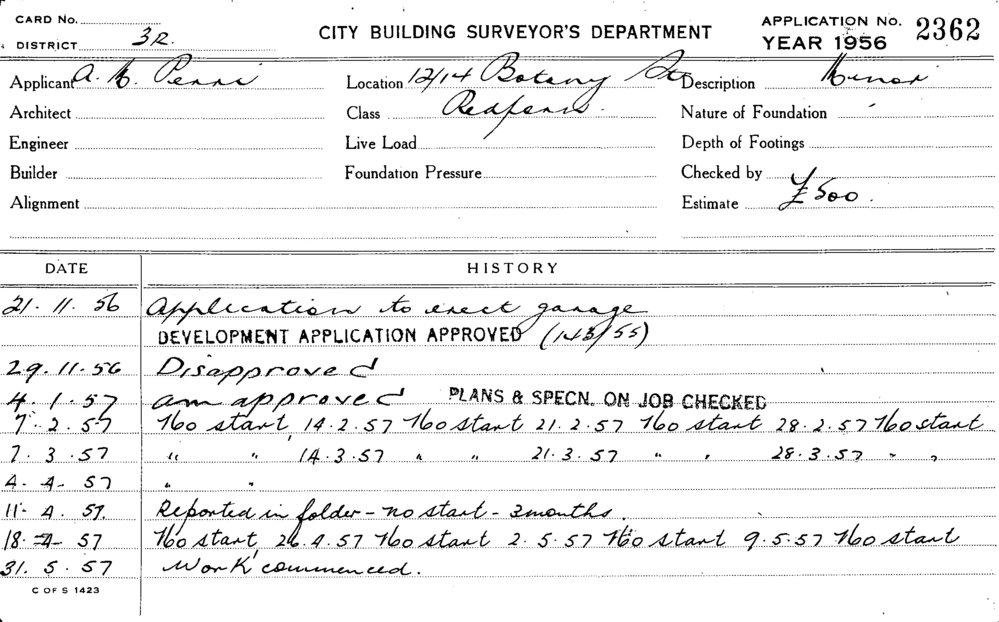 CARD No.
DISTRICT 3R.
CITY BUILDING SURVEYOR'S DEPARTMENT
APPLICATION No. 2362
YEAR 1956
Applicant A. Perri
Location 12/14 Botany St
Description Minor
Architect
Class Redfern.
Nature of Foundation
Engineer
Live Load
Depth of Footings
Builder
Foundation Pressure
Checked by
Alignment
Estimate £500.
DATE HISTORY
21. 11. 56 Application to erect garage
DEVELOPMENT APPLICATION APPROVED (143/55)
29. 11. 56 Disapproved
4. 1. 57 am approved PLANS & SPECN. ON JOB CHECKED
7. 2. 57 No start, 14. 2. 57 No start 21. 2. 57 No start 28. 2. 57 No start
7. 3. 57 " " 14. 3. 57 " " 21. 3. 57 " " 28. 3. 57 " "
4. 4. 57 " "
11. 4. 57. Reported in folder - no start - 3 months.
18. 4. 57 No start, 26. 4. 57 No start 2. 5. 57 No start 9. 5. 57 No start
31. 5. 57 Work commenced.
C OF S 1423